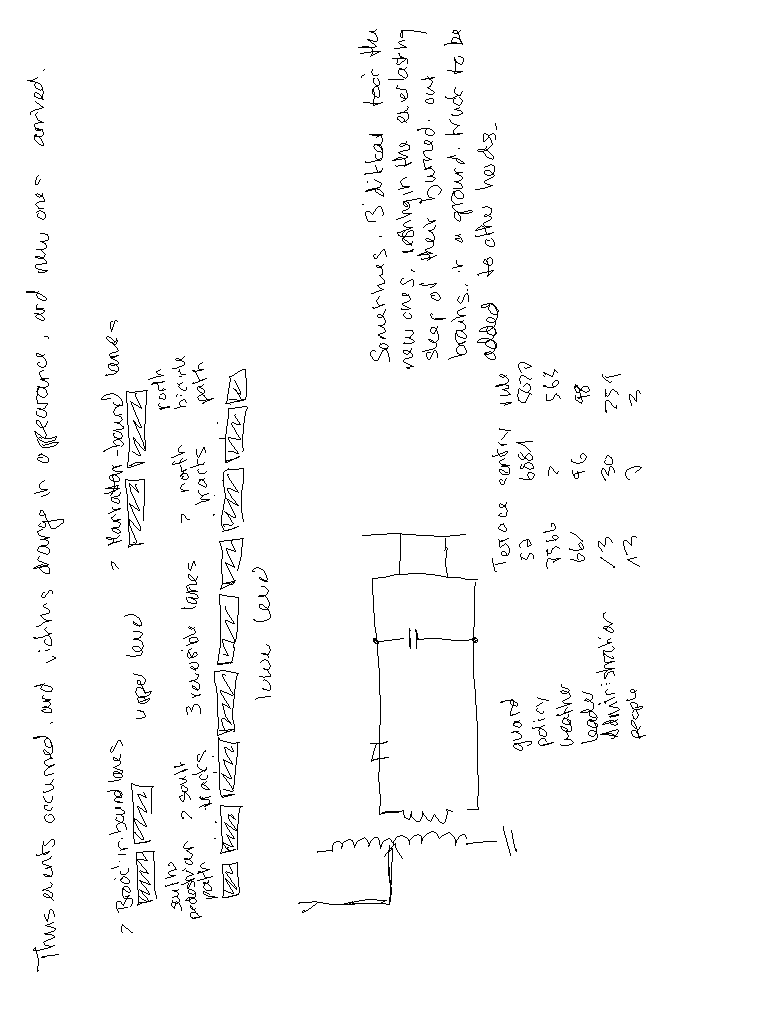 Thus events occurred, and victims change in appearance, and new ones arrived.
upper level
Manhattan-bound lanes
south pedestrian path
south tracks
3 reversible lanes
north tracks
north bicycle path
lower level
Sometimes, I ditked tear the
new ones, the everlasting
sleep of their burned-out
brains, + a ground. truck to be
added to other herds.
Terrace sentry rule
guard 52 6881
policy 7566 2 563
weather 661 46 98
leader 13 30 259
administration
people 13 2 3